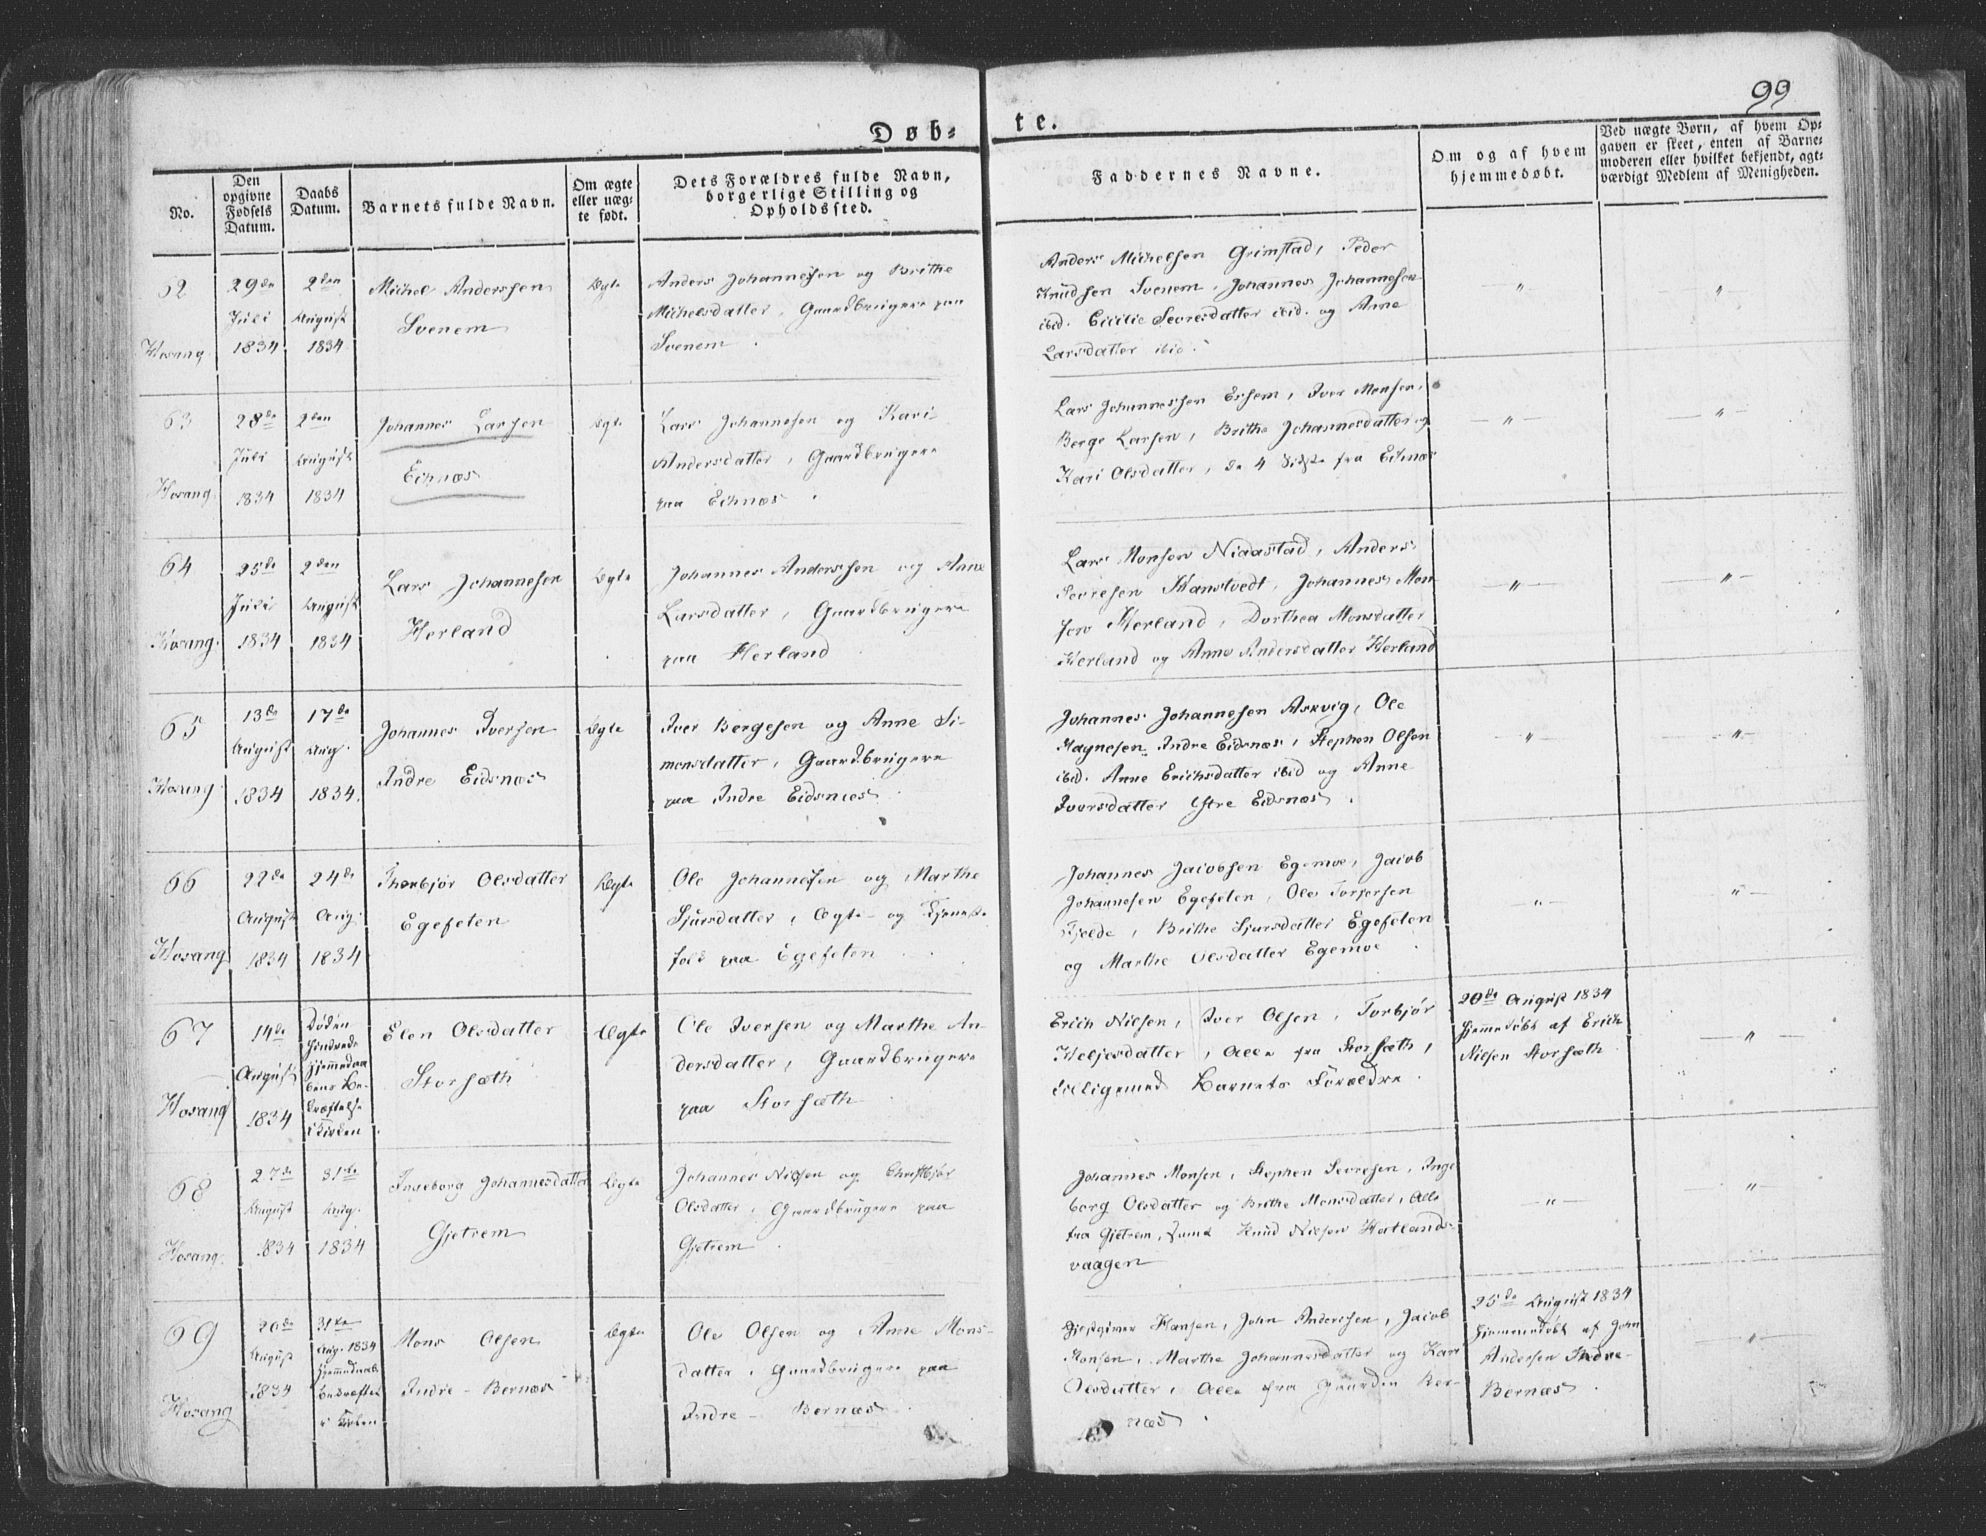 99
Døb-
te.
No.
Den opgivne Fødsels Datum.
Daabs Datum.
Barnets fulde Navn.
Om ægte eller uægte født.
Dets Forældres fulde Navn, borgerlige Stilling og Opholdssted.
Faddernes Navne.
Om og af hvem hjemmedøbt.
Ved uægte Børn, af hvem Opgaven er skeet, enten af Barnemoderen eller hvilket bekjendt, agtværdigt Medlem af Menigheden.
62
Hosang
29de
Juli
1834
2den
August
1834
Michel Anderssen
Svenem
Ægte
Anders Johannessen og Brithe
Michelsdatter, Gaardbrugere paa
Svenem.
Anders Michelsen Grimstad, Peder
Knudsen Svenem, Johannes Johannesen
ibid. Cicilie Sevresdatter ibid. og Anne
Larsdatter ibid.
— " —
— " —
63
Hosang
28de
Juli
1834
2den
August
1834
Johannes Larsen
Eihnæs
Ægte
Lars Johannesen og Kari
Andersdatter, Gaardbrugere
paa Eihnæs.
Lars Johannessen Eshem, Iver Monsen,
Berge Larsen, Brithe Johannesdatter og
Kari Olsdatter, de 4 sidste fra Eihnæs
— " —
— " —
64
Hosang
25de
Juli
1834
2den
August
1834
Lars Johannesen
Herland
Ægte
Johannes Anderssen og Anne
Larsdatter, Gaardbrugere
paa Herland
Lars Monsen Niaastad, Anders
Sevresen Hanstvedt, Johannes Mon
sen Herland, Dorthea Monsdatter
Herland og Anne Andersdatter Herland
— " —
— " —
65
Hosang
13de
August
1834
17de
Aug.
1834
Johannes Iversen
Indre Eidsnæs
Ægte
Iver Bergesen og Anne Si-
monsdatter, Gaardbrugere
paa Indre Eidsnæs.
Johannes Johannesen Askvig, Ole
Magnesen Indre Eidsnæs, Stephen Olsen
ibid. Anne Erichsdatter ibid og Anne
Iversdatter Ystre Eidsnæs.
— " —
— " —
66
Hosang
22de
August
1834
24de
Aug.
1834
Thorbjør Olsdatter
Egefeten
Ægte
Ole Johannessen og Marthe
Sjursdatter, Ægte- og Tjeneste
folk paa Egefeten
Johannes Jacobsen Egemoe, Jacob
Johannesen Egefeten, Ole Torgersen
Fjelde, Brithe Sjursdatter Egefeten
og Marthe Olsdatter Egemoe.
— " —
— " —
67
Hosang
14de
August
1834
Døden
hindrede
hjemmedaa
bens be-
kræftelse
i Kirken
Elen Olsdatter
Storsæth
Ægte
Ole Iversen og Marthe An-
dersdatter, Gaardbrugere
paa Storsæth.
Erich Nilsen, Iver Olsen, Torbjør
Heljesdatter, alle fra Storsæth,
tilligemed Barnets Forældre.
20de August 1834
hjemmedøbt af Erich
Nielsen Storsæth.
— " —
68
Hosang
27de
August
1834
31te
Aug.
1834
Ingeborg Johannesdatter
Gjetrem
Ægte
Johannes Nilsen og Christbjør
Olsdatter, Gaardbrugere paa
Gjetrem.
Johannes Monsen, Stephen Sevresen, Inge
borg Olsdatter og Brithe Monsdatter, alle
fra Gjetrem, samt Knud Nielsen Hatlands-
vaagen
— " —
— " —
69
Hosang
20de
August
1834
31te
Aug. 1834
hjemmedaab
bekræftet
i Kirken
Mons Olsen
Indre-Bernæs
Ægte
Ole Olsen og Anne Mons-
datter, Gaardbrugere paa
Indre-Bernæs.
Gjestgiver Hansen, John Anderssen, Jacob
Monsen, Marthe Johannesdatter og Kari
Olsdatter, alle fra Gaarden Ber-
næs.
25de August 1834
hjemmedøbt af John
Andersen Indre-
Bernæs.
— " —